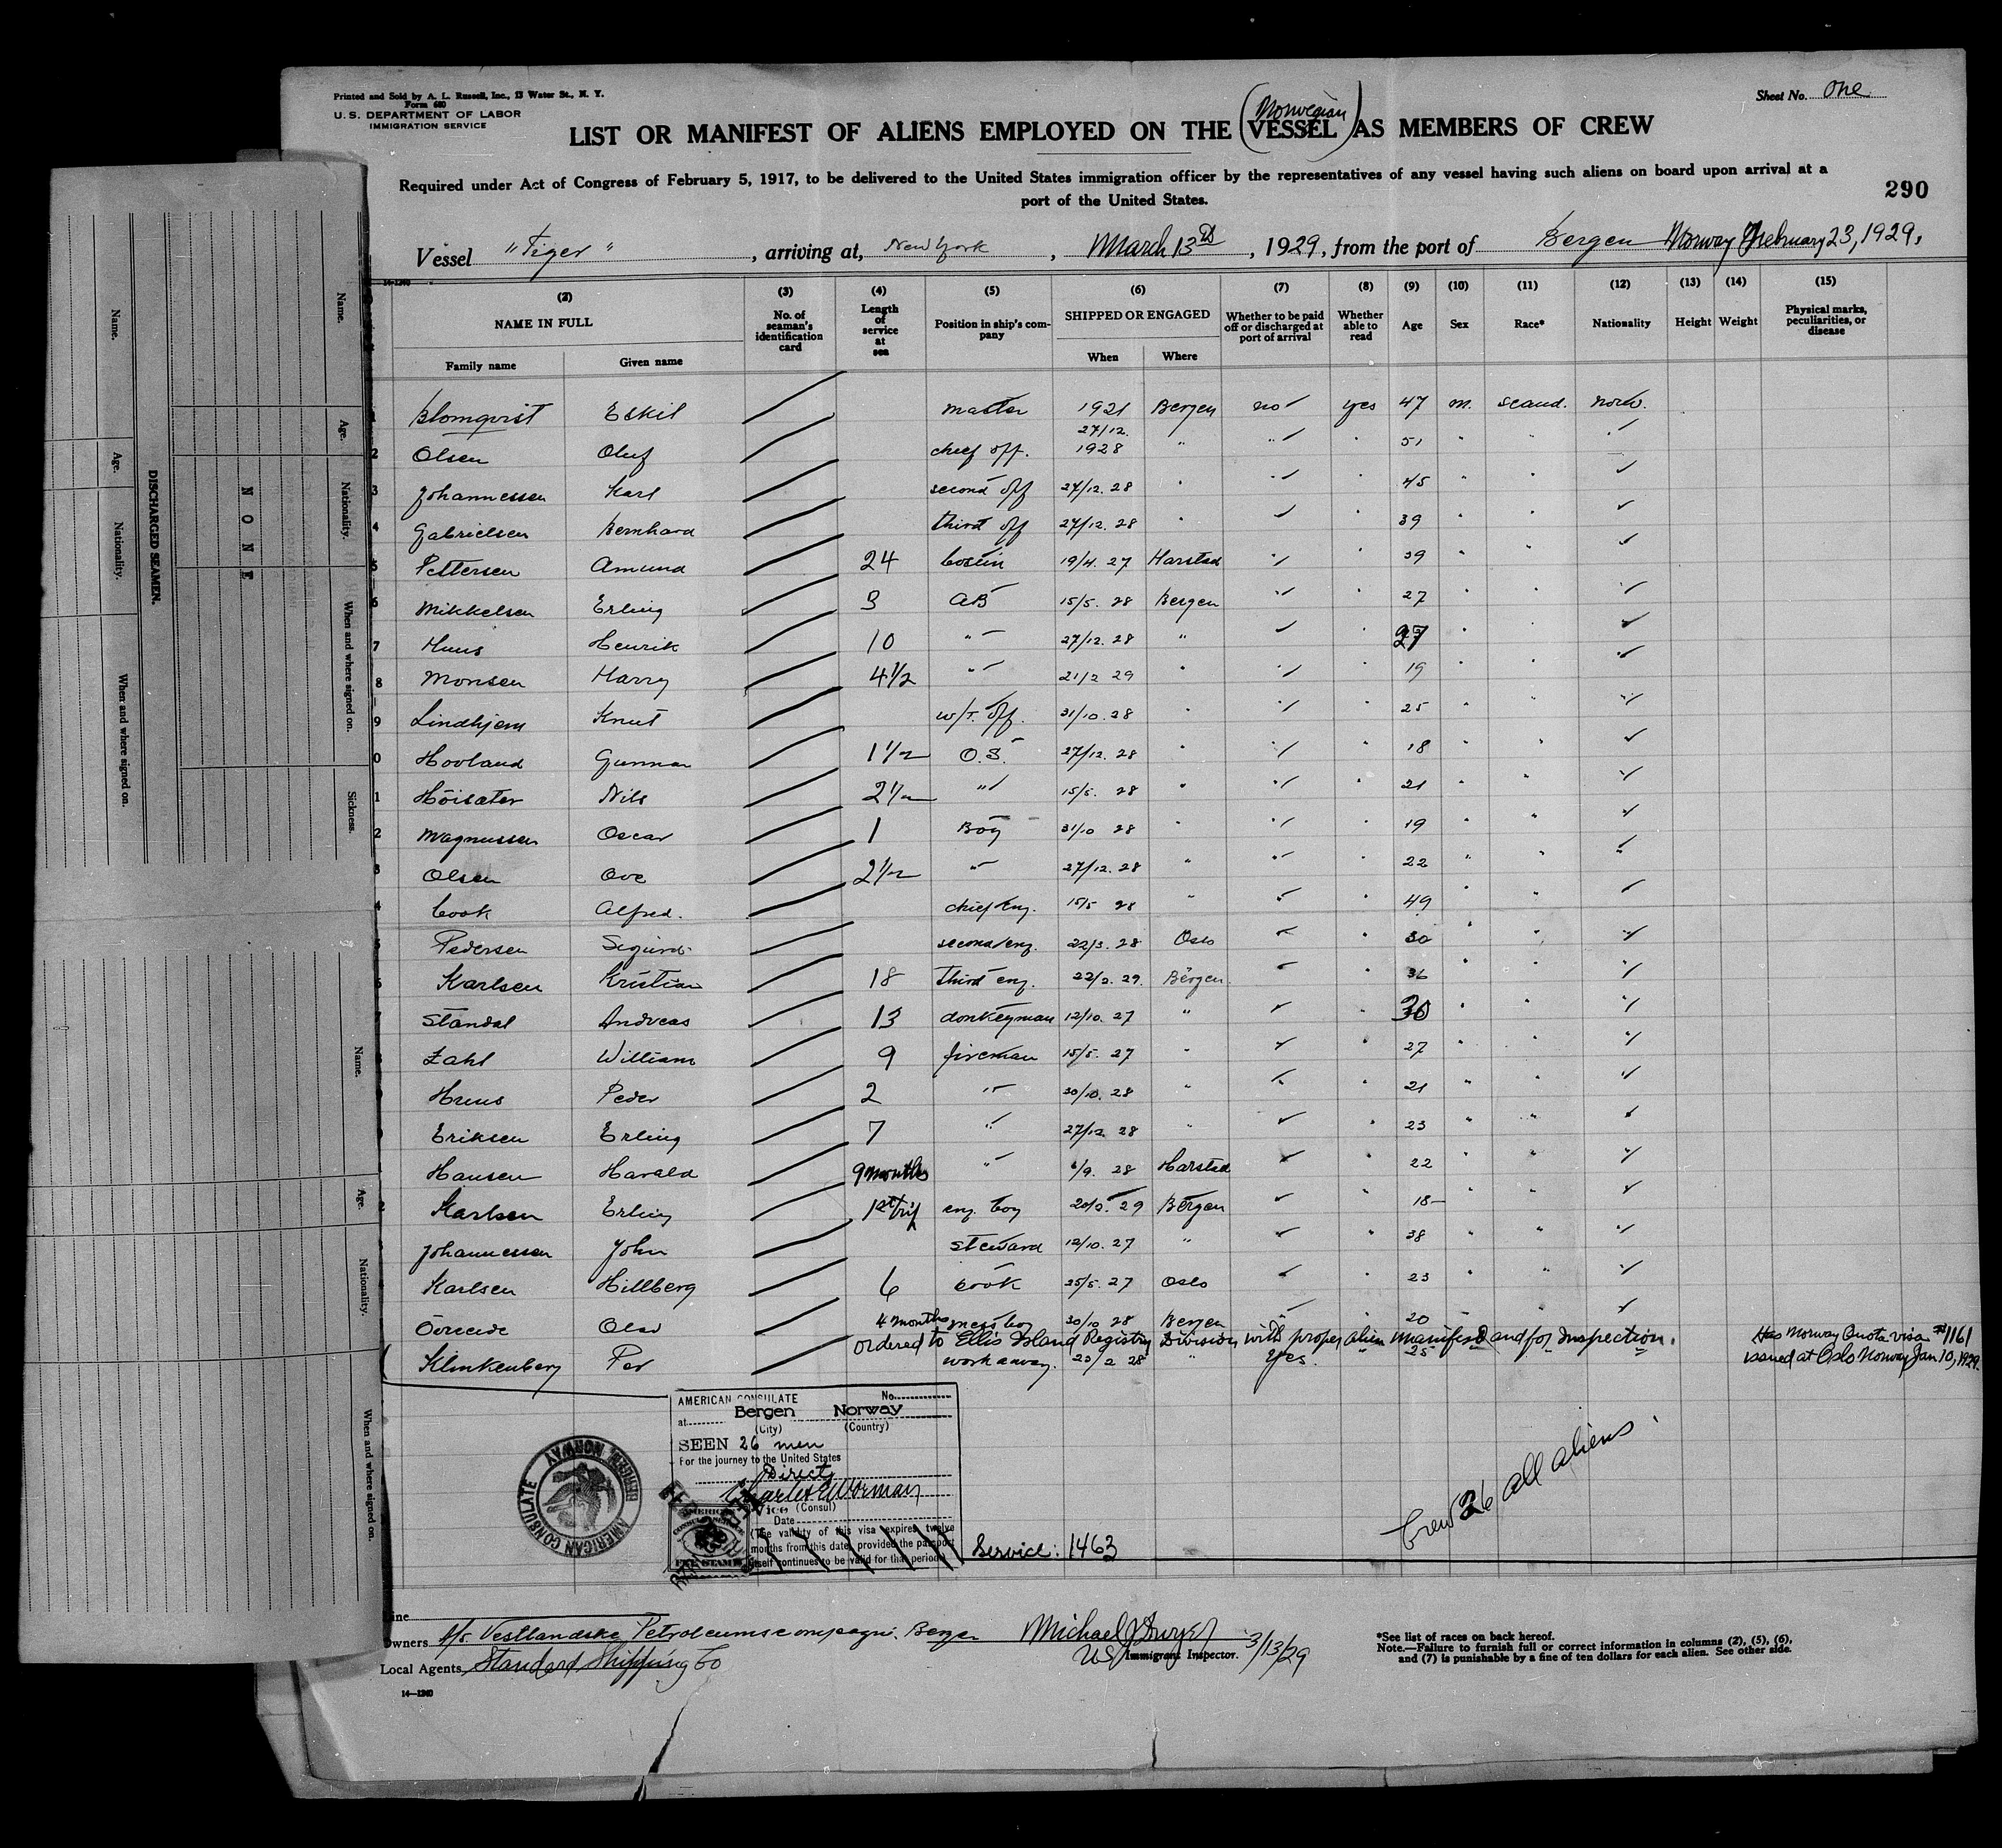 Printed and Sold by A. L. Russell, Inc., 13 Water St., N. Y.
Form 680
U. S. DEPARTMENT OF LABOR
IMMIGRATION SERVICE
Sheet No. One
LIST OR MANIFEST OF ALIENS EMPLOYED ON THE (Norwegian VESSEL) AS MEMBERS OF CREW
Required under Act of Congress of February 5, 1917, to be delivered to the United States immigration officer by the representatives of any vessel having such aliens on board upon arrival at a
port of the United States.
290
Vessel "Tiger", arriving at, New York, March 13th, 1929, from the port of Bergen Norway February 23, 1929.
14-1240
(2) (3) (4) (5) (6) (7) (8) (9) (10) (11) (12) (13) (14) (15)
NAME IN FULL No. of seaman's identification card Length of service at sea Position in ship's company SHIPPED OR ENGAGED Whether to be paid off or discharged at port of arrival Whether able to read Age Sex Race* Nationality Height Weight Physical marks, peculiarities, or disease
Family name Given name When Where
Blomqvist Eskil master 1921 Bergen no yes 47 m. scand. norw.
2 Olsen Oluf chief off. 27/12. 1928 " " " 51 " " "
3 Johannessen Karl second off 27/12. 28 " " " 45 " " "
4 Gabrielsen Bernhard third off 27/12. 28 " " 39 " "
5 Pettersen Amund 24 bostin 19/4. 27 Harstad " " 39 " "
6 Mikkelsen Erling 3 AB 15/5. 28 Bergen " " 27 " " "
7 Huus Henrik 10 " 27/12. 28 " " 27 " " "
8 Monsen Harry 4 1/2 " 21/2 29 " " " 19 " " "
9 Lindhjem Knut w/T. off. 31/10. 28 " " " 25 " " "
0 Hovland Gunnar 1 1/2 O.S. 27/12. 28 " " " 18 " "
1 Höisæter Nils 2 1/2 " 15/5. 28 " " " 21 " " "
2 Magnussen Oscar 1 Boy 31/10 28 " " " 19 " " "
3 Olsen Ove 2 1/2 " 27/12. 28 " " " 22 " " "
4 Cook Alfred. chief Eng. 15/5 28 " " " 49 " "
Pedersen Sigurd second eng. 22/3. 28 Oslo " " 30 " " "
Karlsen Kristian 18 third eng. 22/2. 29. Bergen " 36 " " "
Standal Andreas 13 donkeyman 12/10. 27 " " 30 " " "
Zahl William 9 fireman 15/5. 27 " " " 27 " " "
Huus Peder 2 " 30/10. 28 " " " 21 " " "
Eriksen Erling 7 " 27/12. 28 " " 23 " " "
Hansen Harald 9 months " 1/9. 28 Harstad " 22 " " "
Karlsen Erling 1st trip eng. boy 20/2. 29 Bergen " 18 " "
Johannessen John steward 12/10. 27 " " 38 " " "
Karlsen Hillberg 6 cook 25/5. 27 Oslo " 23 " " "
Olav 4 months mess boy 30/10 28 Bergen " 20
ordered to Ellis Island Registry Division with proper alien manifest and for Inspection. Has Norway Quota visa #1161
Klinkenberg Per workaway. 23/2 28 " Yes. " 25 issued at Oslo Norway Jan 10, 1929.
AMERICAN CONSULATE No.
at Bergen Norway
(City) (Country)
SEEN 26 men
For the journey to the United States
Direct
Vice (Consul)
Date
(The validity of this visa expires twelve
months from this date, provided the passport
itself continues to be valid for that period)
AMERICAN CONSULATE BERGEN, NORWAY
FEE STAMP
Service: 1463
Crew 26 all aliens
Line
Owners A/s. Vestlandske Petroleumscompagni. Bergen
Michael J Dwyer
US Immigrant Inspector. 3/13/29
Local Agents Standard Shipping Co
14—1240
*See list of races on back hereof.
Note.—Failure to furnish full or correct information in columns (2), (5), (6),
and (7) is punishable by a fine of ten dollars for each alien. See other side.
DISCHARGED SEAMEN.
NONE
Name. Age. Nationality. When and where signed on. Sickness.
Name. Age. Nationality. When and where signed on.
Name. Age. Nationality. When and where signed on.